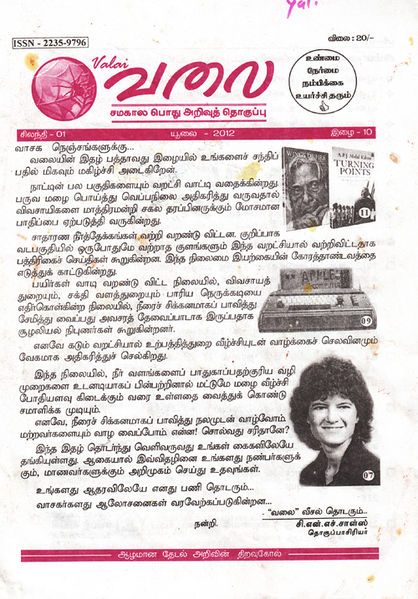 yal.
ISSN - 2235-9796
விலை : 20/-
Valai
வலை
சமகால பொது அறிவுத் தொகுப்பு
உண்மை
நேர்மை
நம்பிக்கை
உயர்ச்சி தரும்
சிலந்தி - 01
யூலை - 2012
இழை - 10
வாசக நெஞ்சங்களுக்கு...
வலையின் இதழ் பத்தாவது இழையில் உங்களைச் சந்திப்
பதில் மிகவும் மகிழ்ச்சி அடைகிறேன்.
நாட்டின் பல பகுதிகளையும் வறட்சி வாட்டி வதைக்கின்றது.
பருவ மழை பொய்த்து வெப்பநிலை அதிகரித்து வருவதால்
விவசாயிகளை மாத்திரமன்றி சகல தரப்பினருக்கும் மோசமான
பாதிப்பை ஏற்படுத்தி வருகின்றது.
சாதாரண நீர்த்தேக்கங்கள் வற்றி வறண்டு விட்டன. குறிப்பாக
வடபகுதியில் ஒருபோதுமே வற்றாத குளங்களும் இந்த வறட்சியால் வற்றிவிட்டதாக
பத்திரிகைச் செய்திகள் கூறுகின்றன. இந்த நிலைமை இயற்கையின் கோரத்தாண்டவத்தை
எடுத்துக் காட்டுகின்றது.
பயிர்கள் வாடி வறண்டு விட்ட நிலையில், விவசாயத்
துறையும், சக்தி வளத்துறையும் பாரிய நெருக்கடியை
எதிர்கொள்கின்ற நிலையில், நீரைச் சிக்கனமாகப் பாவித்து
சேமித்து வைப்பது அவசரத் தேவைப்பாடாக இருப்பதாக
சூழலியல் நிபுணர்கள் கூறுகின்றனர்.
எனவே கடும் வறட்சியால் உற்பத்தித்துறை வீழ்ச்சியுடன் வாழ்க்கைச் செலவினமும்
வேகமாக அதிகரித்துச் செல்கிறது.
இந்த நிலையில், நீர் வளங்களைப் பாதுகாப்பதற்குரிய வழி
முறைகளை உடனடியாகப் பின்பற்றினால் மட்டுமே மழை வீழ்ச்சி
போதியளவு கிடைக்கும் வரை உள்ளதை வைத்துக் கொண்டு
சமாளிக்க முடியும்.
எனவே, நீரைச் சிக்கனமாகப் பாவித்து நலமுடன் வாழ்வோம்
மற்றவர்களையும் வாழ வைப்போம். என்ன! சொல்வது சரிதானே?
இந்த இதழ் தொடர்ந்து வெளிவருவது உங்கள் கைகளிலேயே
தங்கியுள்ளது. ஆகையால் இவ்விதழினை உங்களது நண்பர்களுக்
கும், மாணவர்களுக்கும் அறிமுகம் செய்து உதவுங்கள்.
உங்களது ஆதரவிலேயே எனது பணி தொடரும்...
வாசகர்களது ஆலோசனைகள் வரவேற்கப்படுகின்றன...
நன்றி.
"வலை" வீசல் தொடரும்...
சி.என்.எச்.சாள்ஸ்
தொகுப்பாசிரியர்
WINGS OF FIRE
A P J Abdul Kalam
TURNING
POINTS
11
APPLE
09
07
ஆழமான தேடல் அறிவின் திறவுகோல்